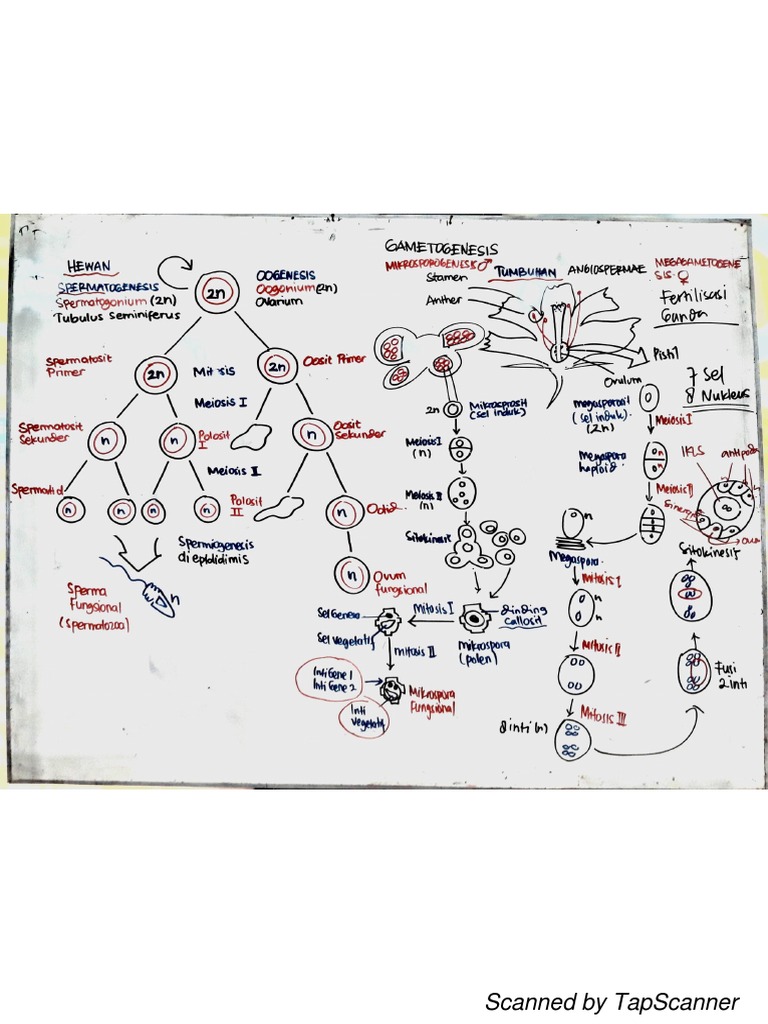 GAMETOGENESIS
HEWAN
SPERMATOGENESIS
Spermatogonium (2n)
Tubulus seminiferus
2n
OOGENESIS
Oogonium (2n)
Ovarium
Spermatosit
Primer
2n
Mitosis
2n
Oosit Primer
Meiosis I
Spermatosit
Sekunder
n
n
Polosit
I
n
Oosit
Sekunder
Meiosis II
Spermatid
n
n
n
n
Polosit
II
n
Ootid
Spermiogenesis
di epididimis
Sperma
Fungsional
(spermatozoa)
n
n
Ovum
fungsional
MIKROSPOROGENESIS ♂
TUMBUHAN
ANGIOSPERMAE
MEGAGAMETOGENE
SIS ♀
Stamen
Anther
Fertilisasi
Ganda
Pistil
Ovulum
7 sel
8 Nukleus
2n
Mikrosprosit
(sel induk)
Meiosis I
(n)
Meiosis II
(n)
Sitokinesis
Dinding
callosit
Mikrospora
(polen)
Mitosis I
Sel Genera
Sel Vegetatif
Mitosis II
Inti Gene 1
Inti Gene 2
Inti
vegetatif
Mikrospora
Fungsional
megasporosit
(sel induk)
(2n)
Meiosis I
megaspora
haploid
Meiosis II
n
Megaspora
Mitosis I
n
n
Mitosis II
Mitosis III
8 inti (n)
Fusi
2 inti
Sitokinesis
antipoda
Sinergid